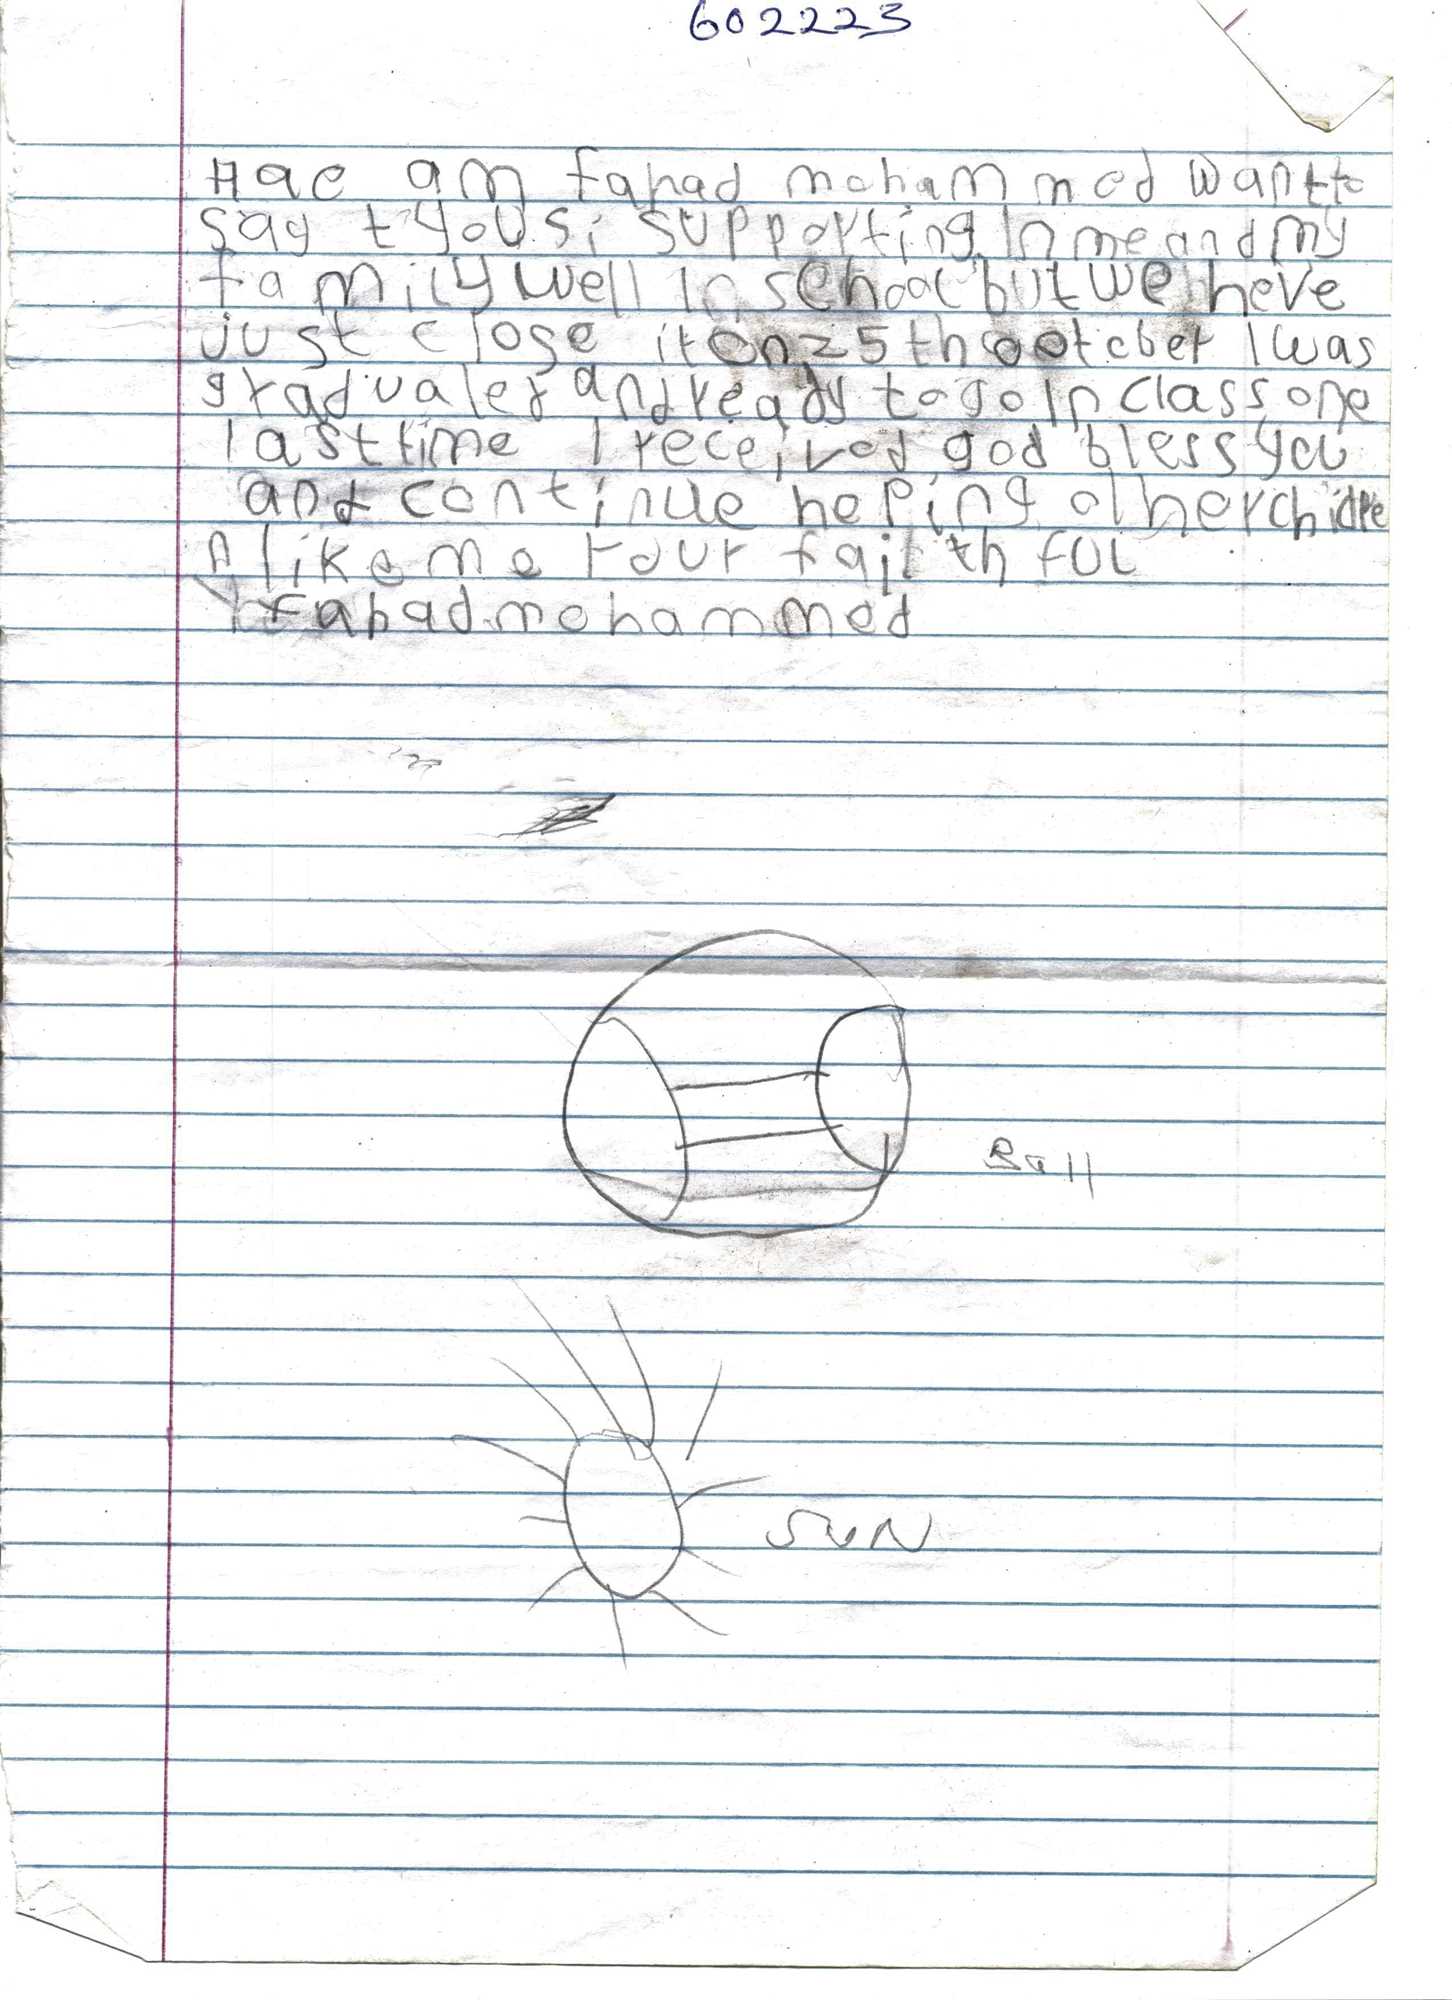 602223
Hae am fahad mohammed want to
say t yous; supporting In me and my
family well In school but we heve
just close it on 25th ootcber I was
gradualed and ready to go In class one
last time I received god bless you
and continue heping other chidre
n like me Your faitth ful
fahad mohammed
Ball
SUN